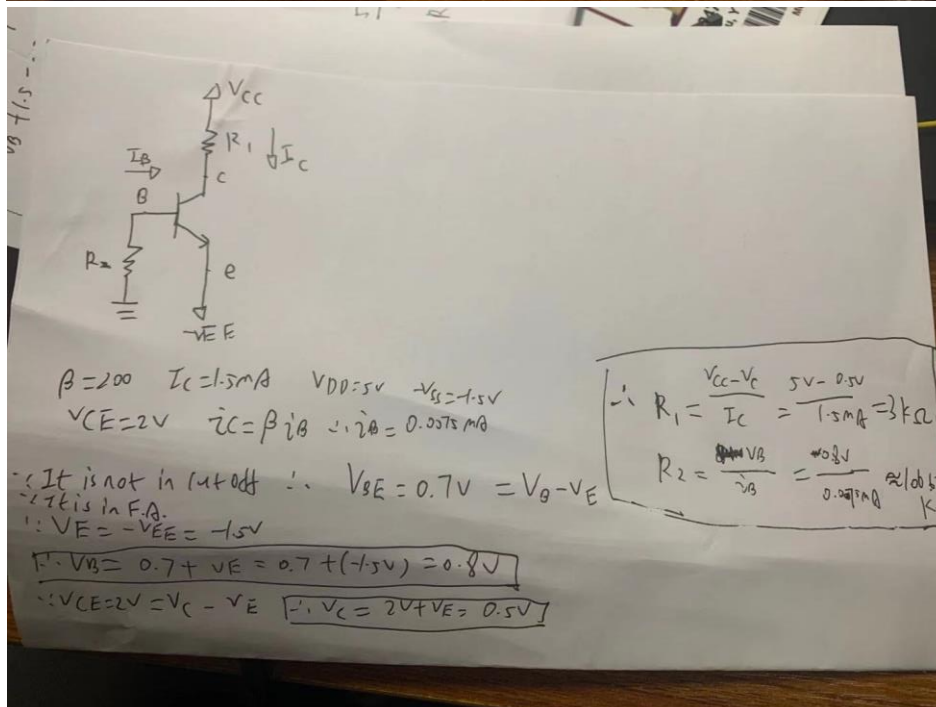 VB +1.5 -
VCC
R1
IC
IB
C
B
R2
e
-VEE
β=200 IC=1.5mA VDD=5V -VSS=-1.5V
VCE=2V iC=βiB ∴iB=0.0075mA
∵It is not in cutoff ∴ VBE=0.7V =VB-VE
∵It is in F.A.
∵VE=-VEE=-1.5V
∴VB=0.7+VE=0.7+(-1.5V)=0.8V
∵VCE=2V=VC-VE ∴VC=2V+VE=0.5V
∴ R1=(VCC-VC)/IC=(5V-0.5V)/1.5mA=3kΩ
R2=VB/iB=0.8V/0.0075mA≈106
K